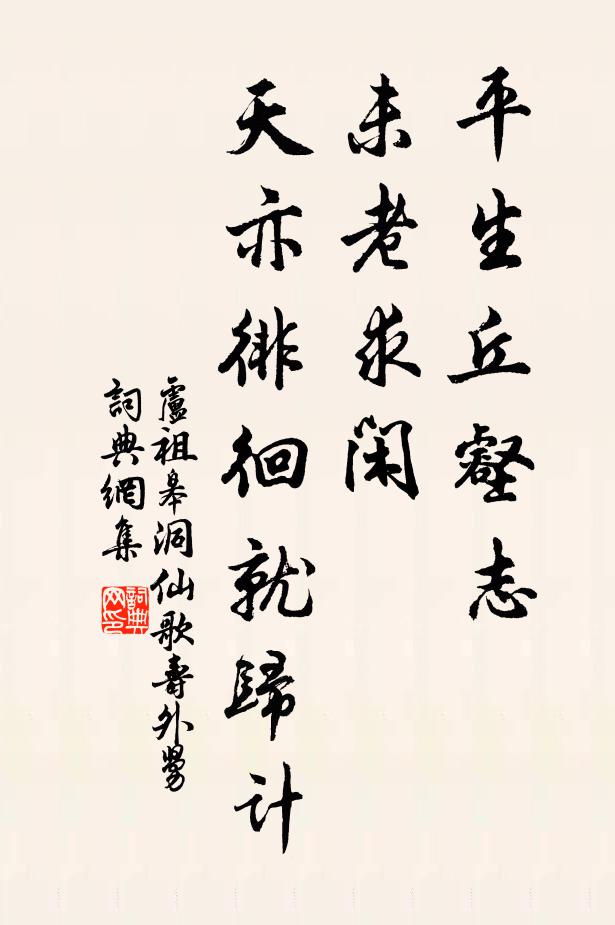 平生丘壑志
未老求閑
天亦徘徊就歸計
盧祖皋洞仙歌壽外舅
詞典網集
詞典网印